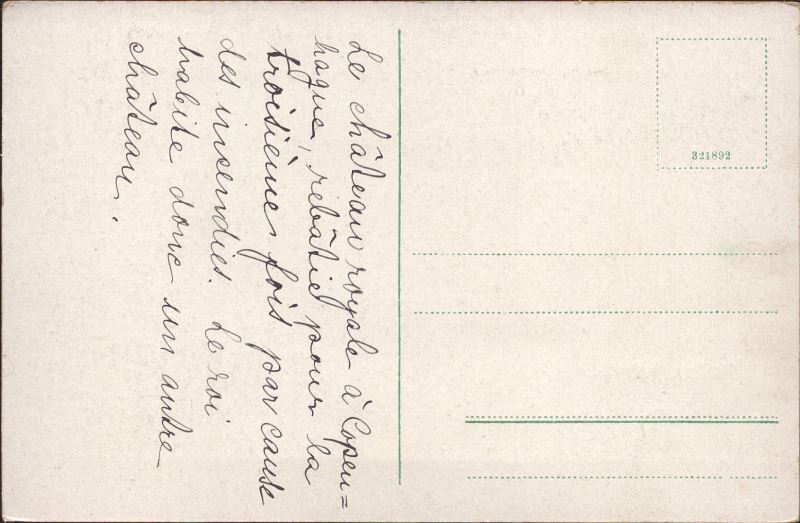 Le château royale à Copen=
hague, rebâtie pour la
troisième fois par cause
des incendies. Le roi
habite donc un autre
château.
321892